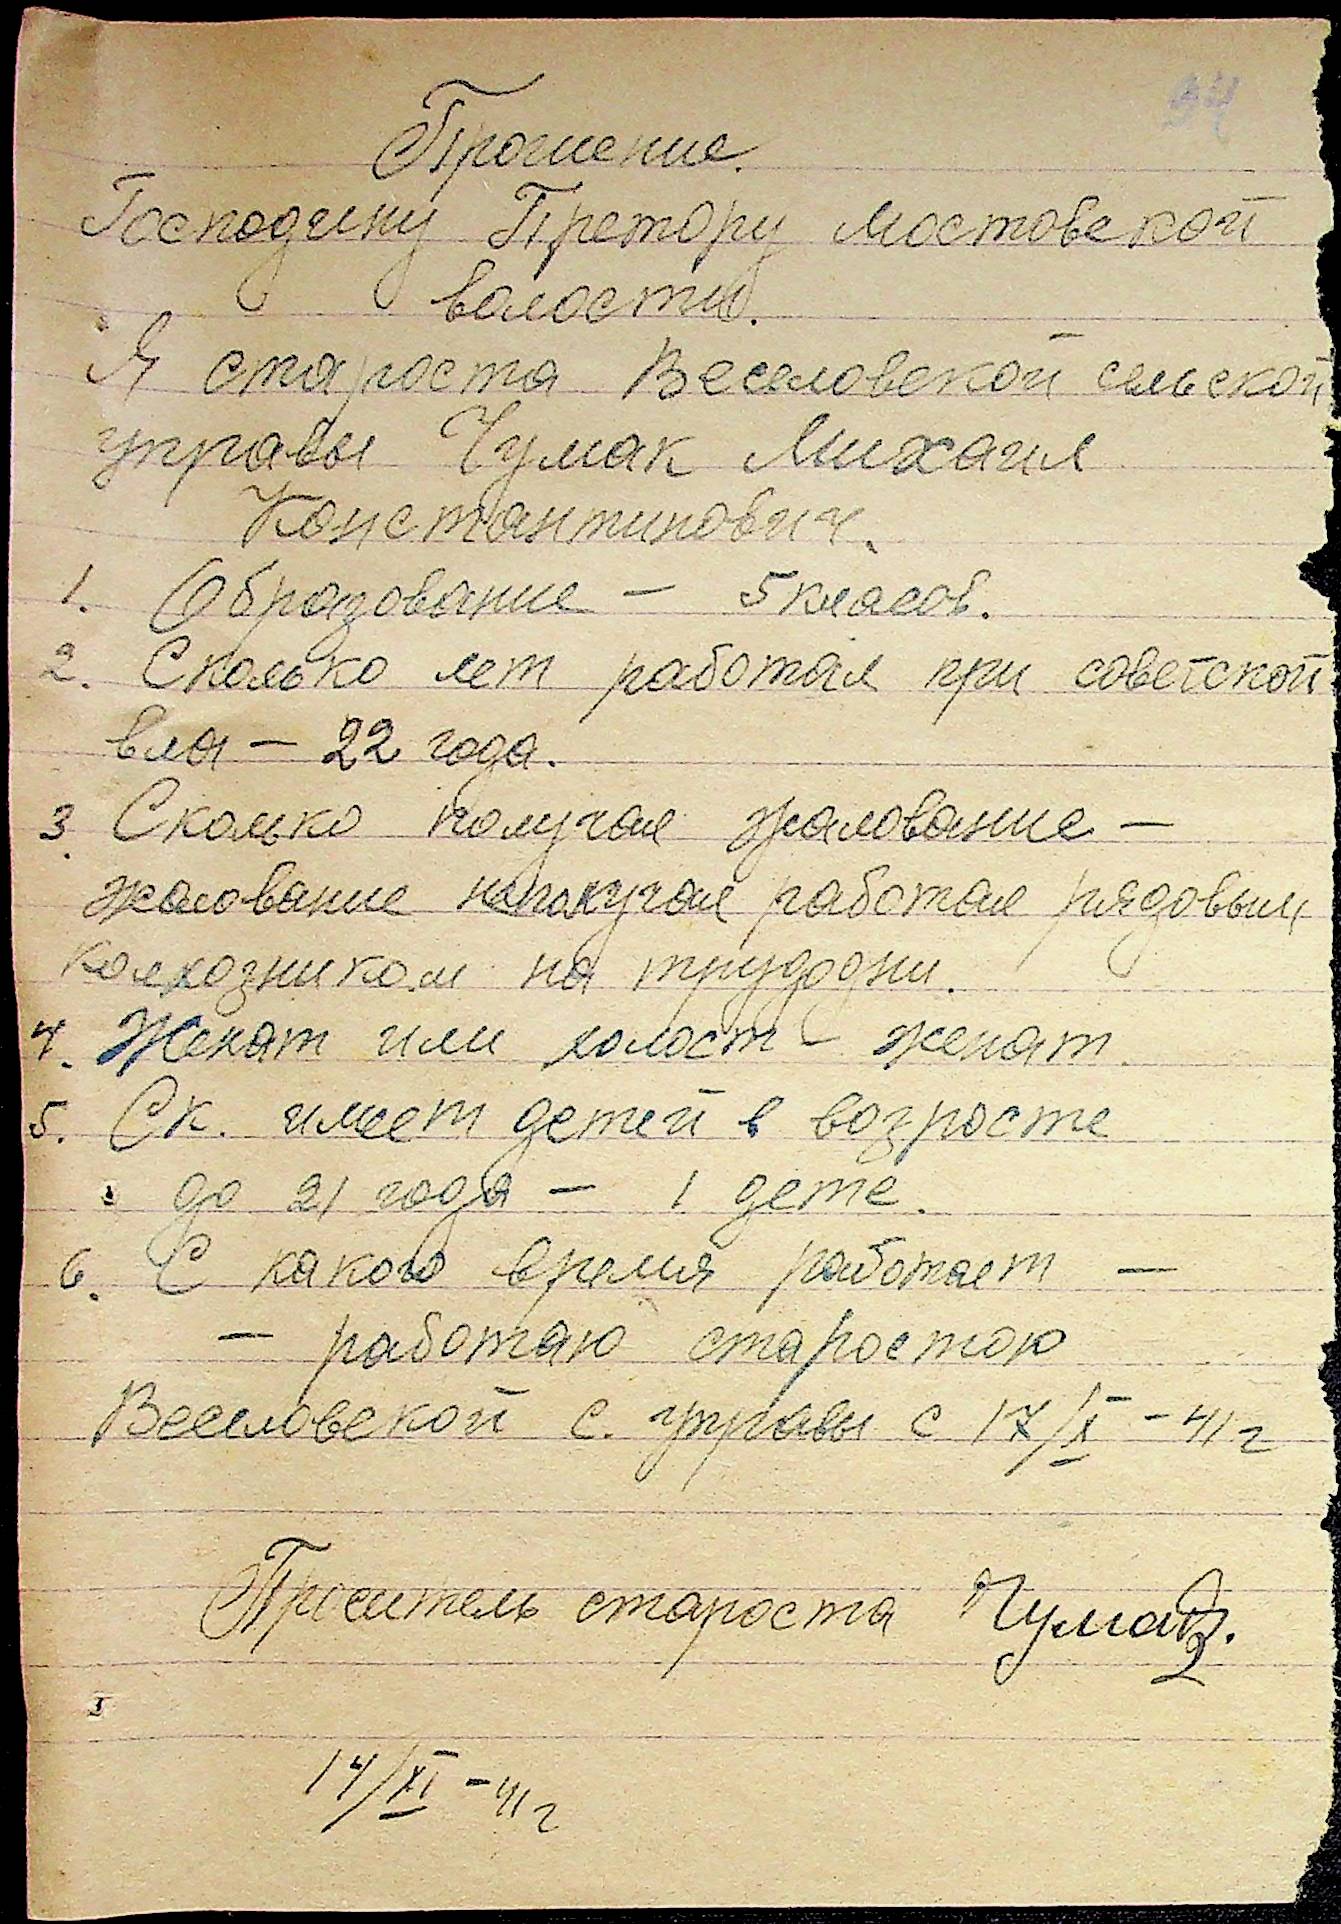 94
Прошение.
Господину Претору мостовской
волости.
Я староста Веселовской сельской
управы Чумак Михаил
Константинович.
1. Образование – 5 класов.
2. Сколько лет работал при советской
влa – 22 года.
3. Сколько получал жалование –
жалование неполучал работал рядовым
колхозником на трудодни.
4. Женат или холост – женат.
5. Ск. имеет детей в возросте
до 21 года – 1 дете.
6. С какого время работает –
– работаю старостою
Веселовской с. управы с 17/X – 41 г
Проситель староста Чумак.
14/XI – 41 г